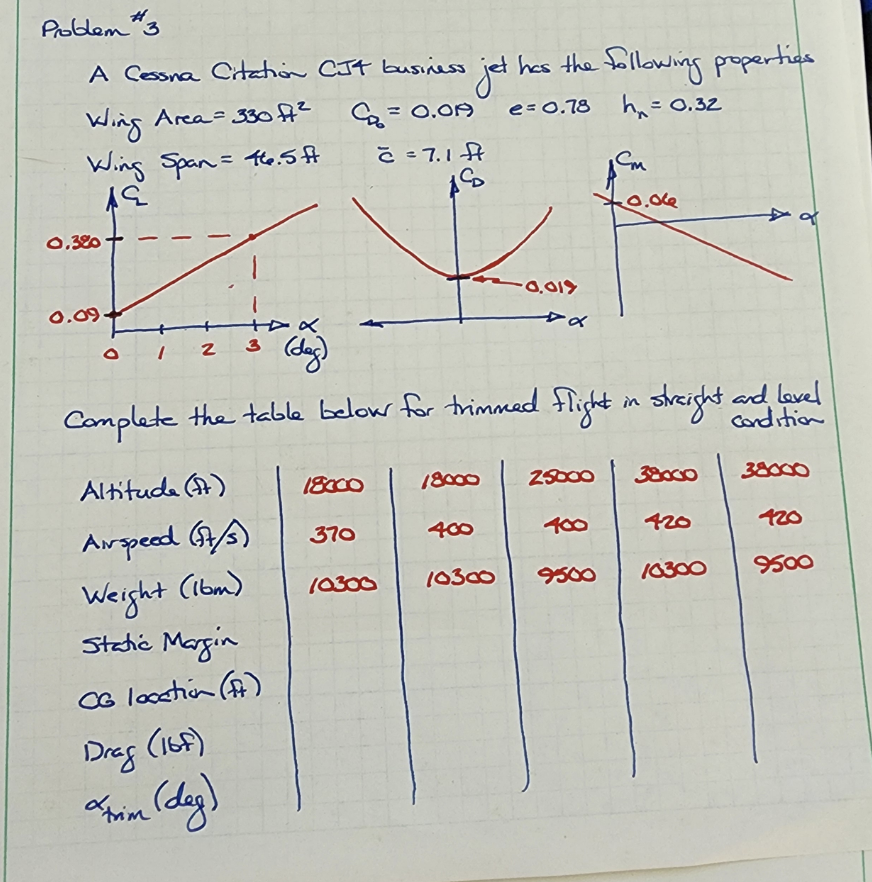 Problem #3
A Cessna Citation CJ4 business jet has the following properties
Wing Area = 330 ft² C_D₀ = 0.019 e = 0.78 hₙ = 0.32
Wing Span = 46.5 ft c̄ = 7.1 ft
C_L
0.380
0.09
0 1 2 3
α
(deg)
C_D
0.019
α
C_M
0.06
α
Complete the table below for trimmed flight in straight and level condition
Altitude (ft) 18000 18000 25000 38000 38000
Airspeed (ft/s) 370 400 400 420 420
Weight (lbm) 10300 10300 9500 10300 9500
Static Margin
CG location (ft)
Drag (lbf)
α_trim (deg)